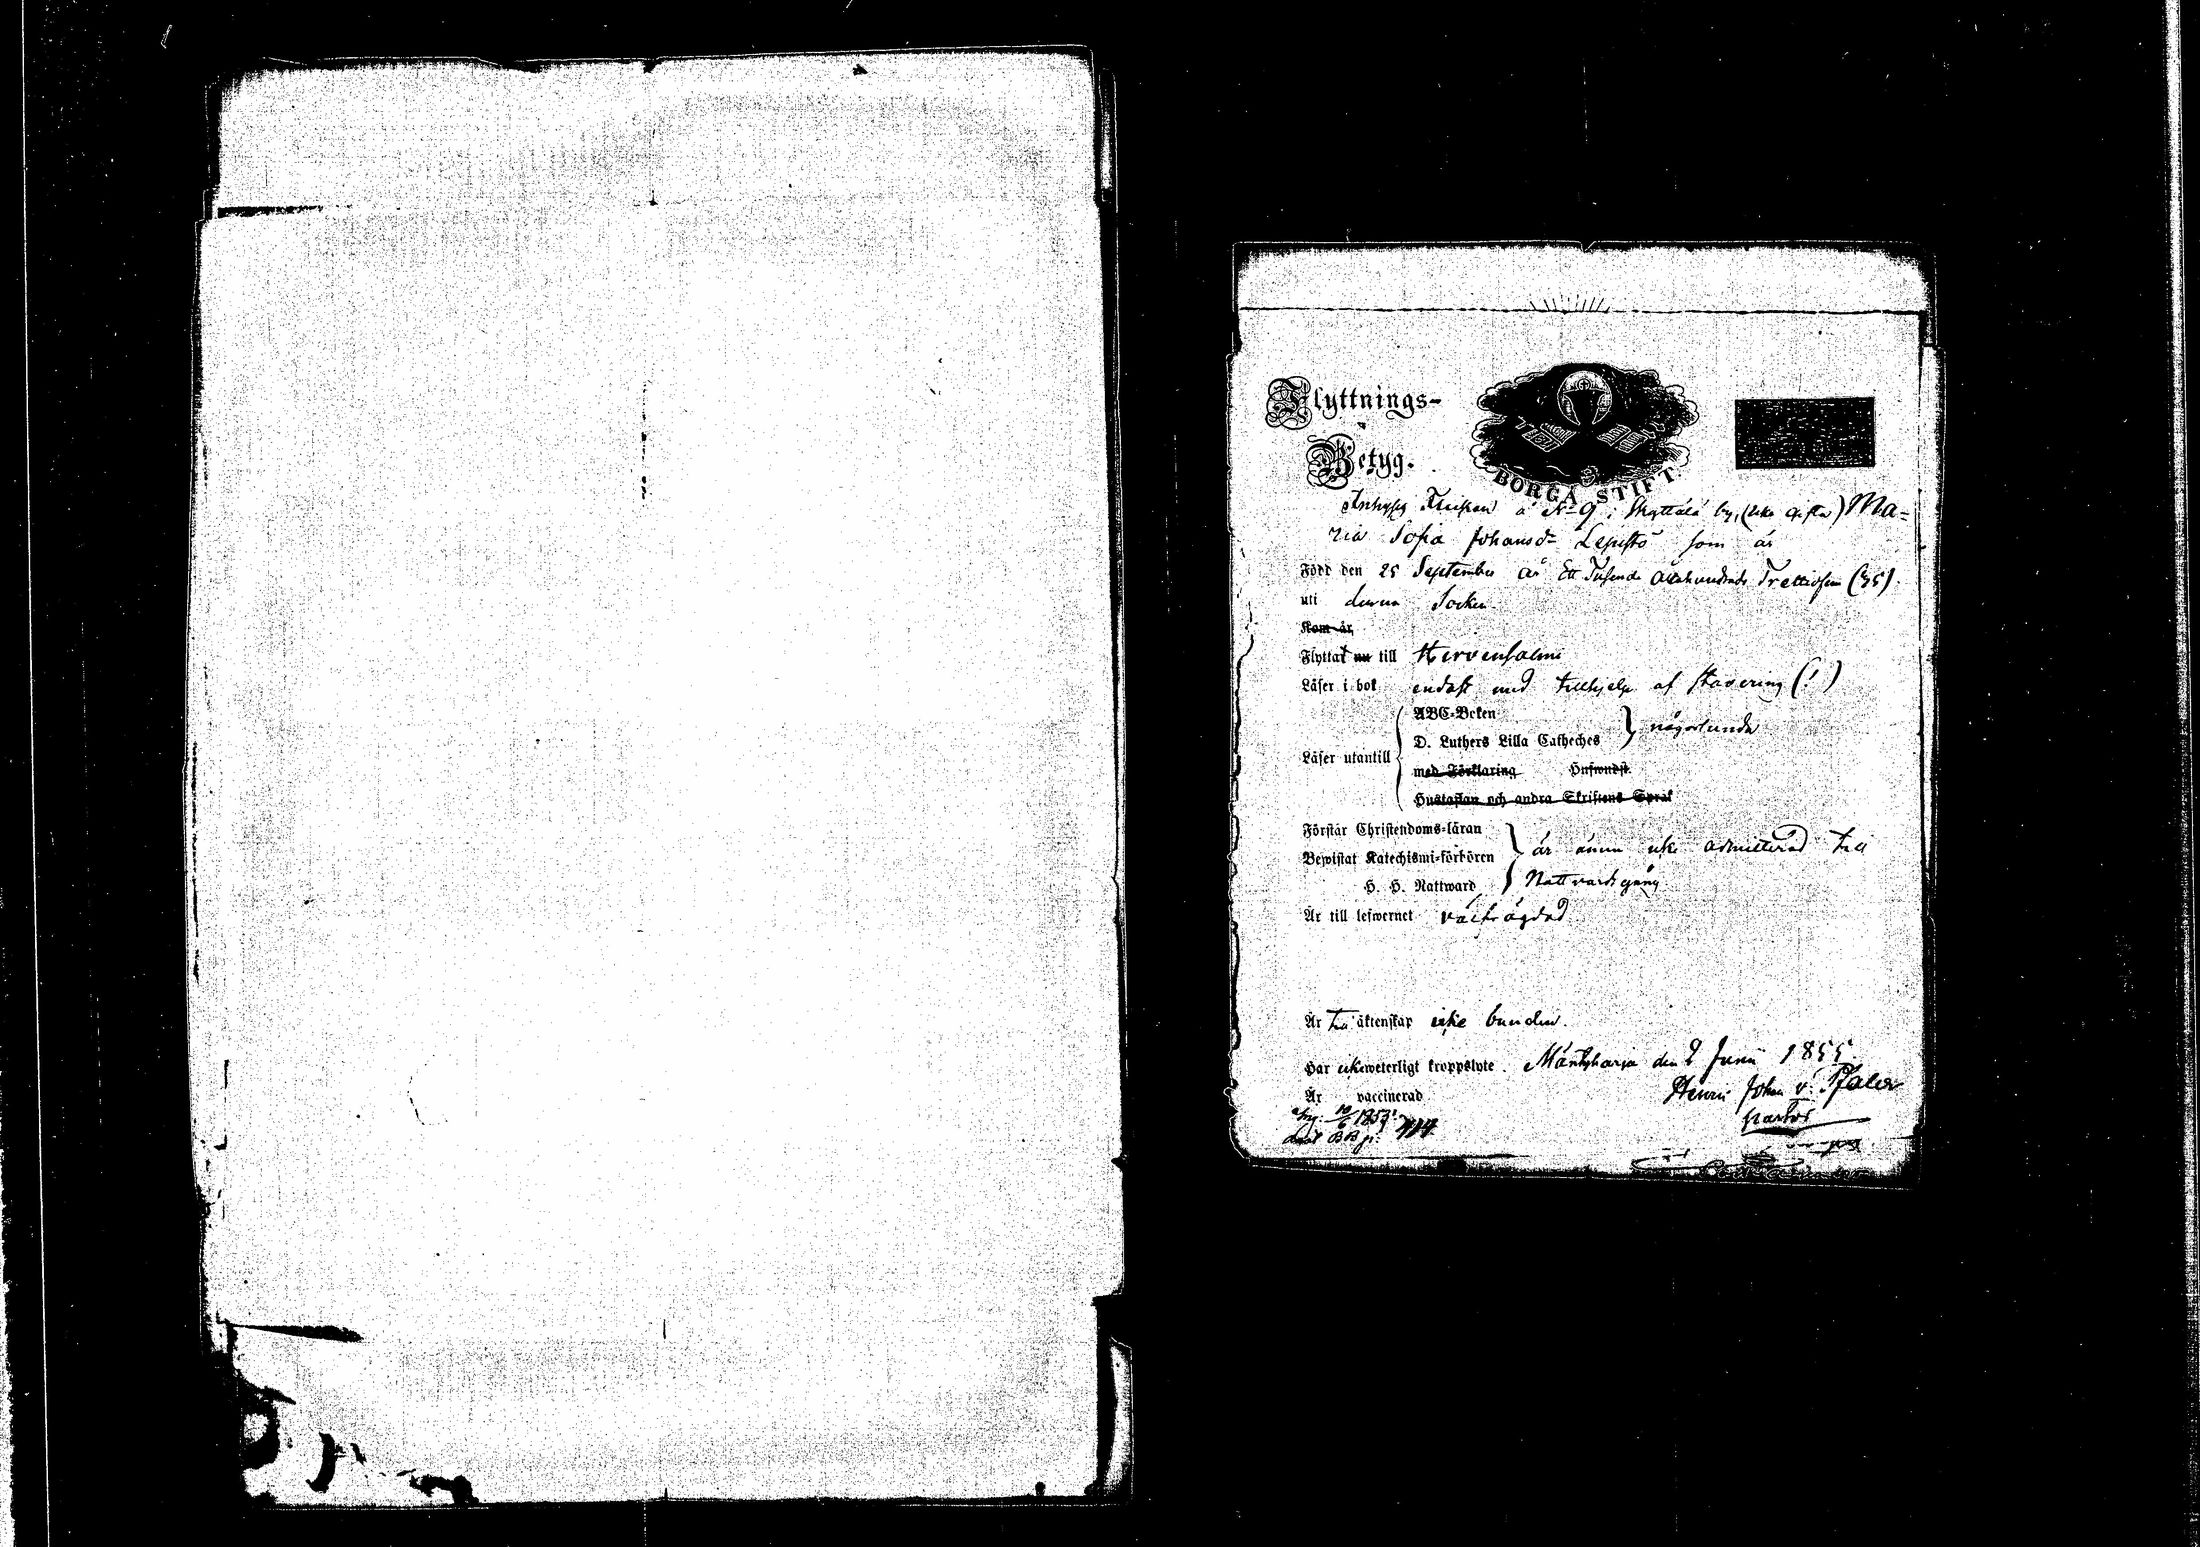 Flyttnings-
Betyg.
BORGÅ STIFT
Inhyses Flickan å № 9 i by, (icke gifta) Ma=
ria Sofia Johansdr Lepistö som är
Född den 25 September år Ett Tusende Åttahundrade Trettiofem (35).
uti denna Socken
Kom år
Flyttat nu till Hirvensalmi
Läser i bok endast med tillhjelp af stavering (!)
ABC-Boken
D. Luthers Lilla Catheches } någorlunda
Läser utantill
med Förklaring Husandst.
Hustaflan och andra Skriftens Språk
Förstår Christendoms-läran
Bewistat Katechismi-förhören } är ännu icke admitterad till
H. H. Nattward Nattvardsgång
Är till lefwernet välfrägdad
Är till äktenskap icke bunden.
Har icke weterligt kroppslyte. Mäntyharju den 2 Junii 1855.
Är vaccinerad Henric Johan v. Pfaler
Pastor